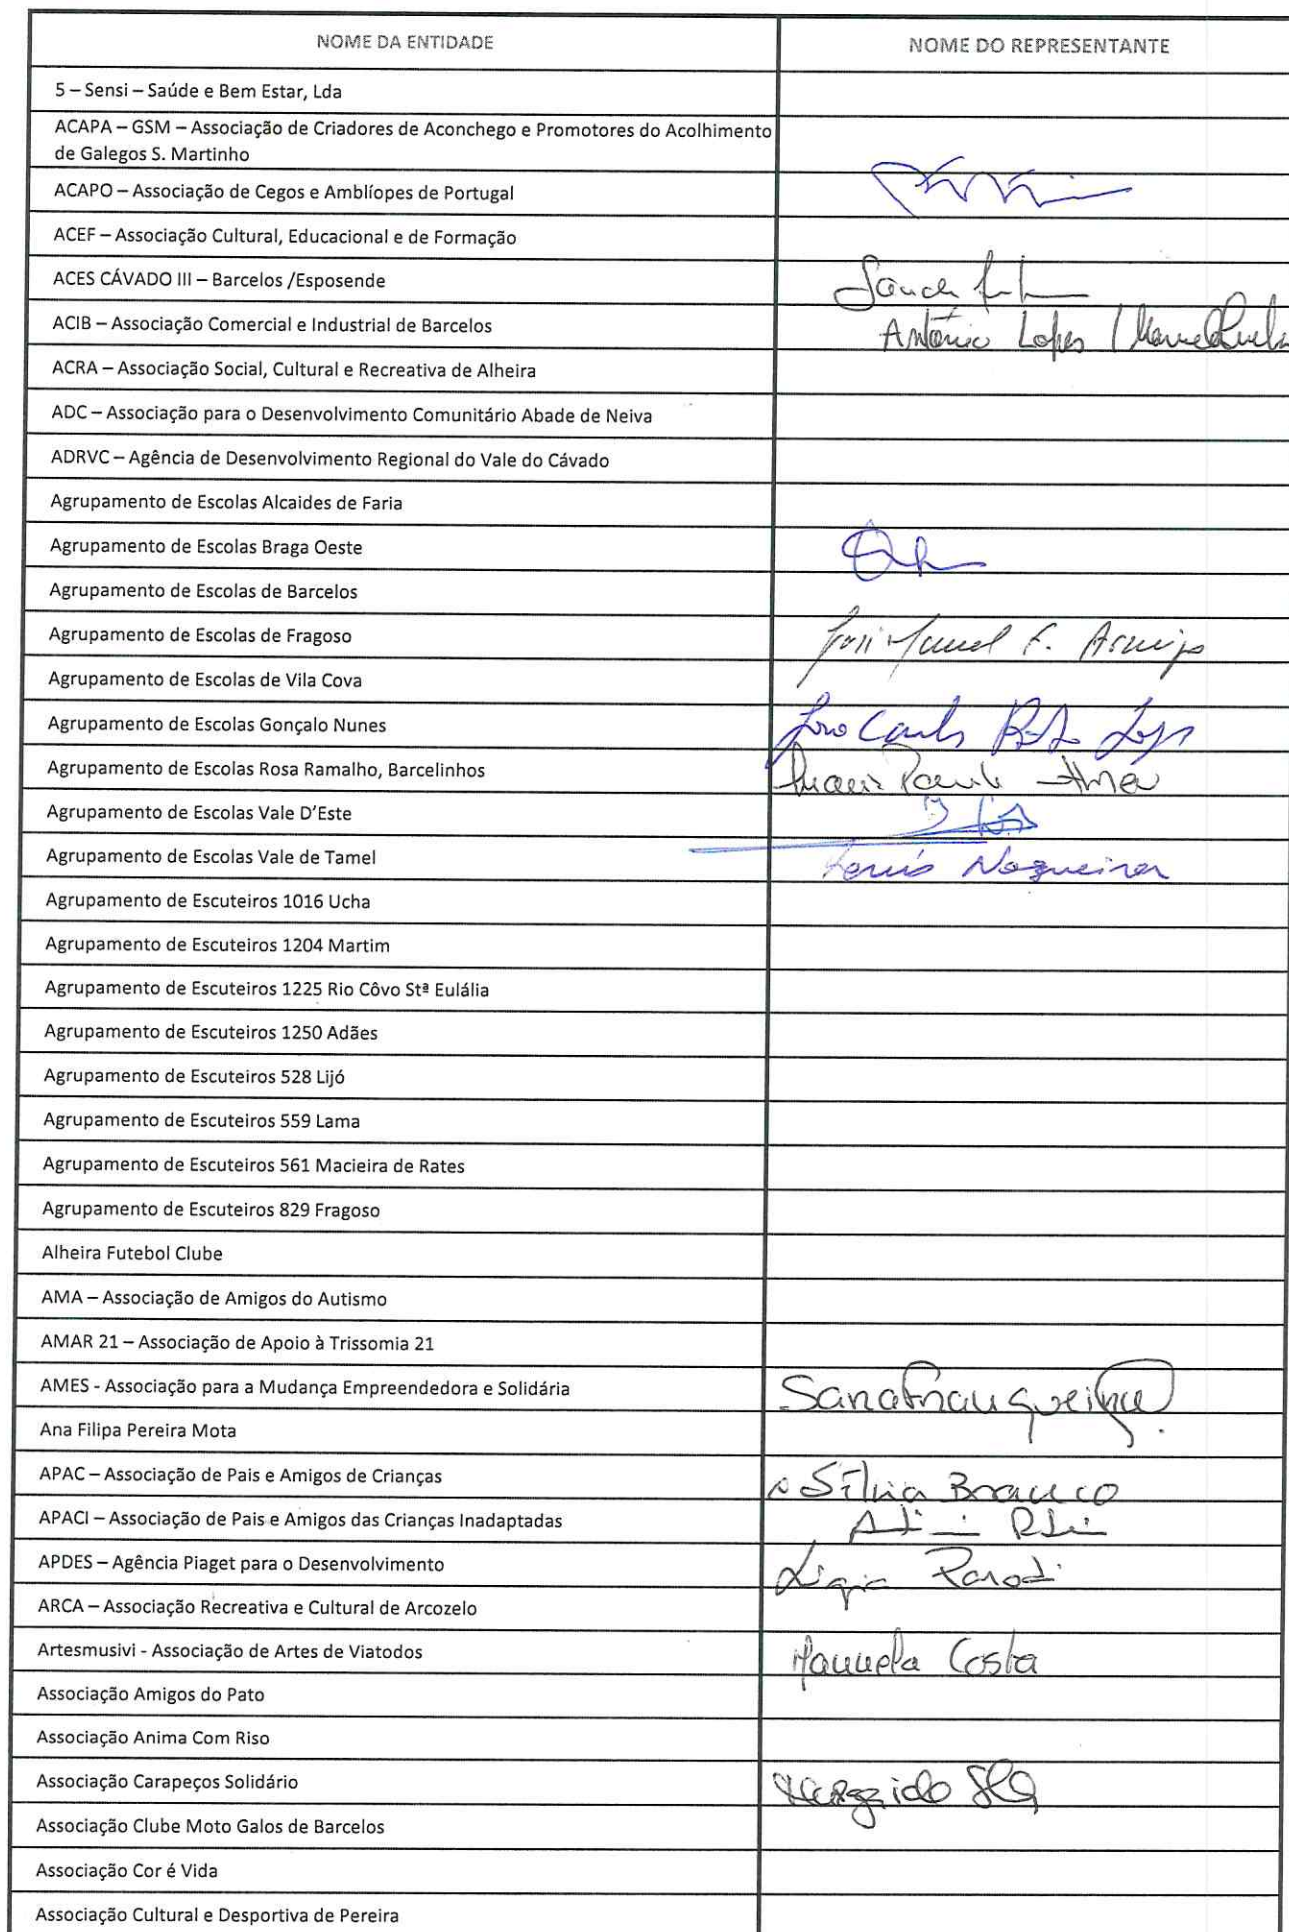 NOME DA ENTIDADE NOME DO REPRESENTANTE
5 – Sensi – Saúde e Bem Estar, Lda
ACAPA – GSM – Associação de Criadores de Aconchego e Promotores do Acolhimento
de Galegos S. Martinho
ACAPO – Associação de Cegos e Amblíopes de Portugal
ACEF – Associação Cultural, Educacional e de Formação
ACES CÁVADO III – Barcelos /Esposende
ACIB – Associação Comercial e Industrial de Barcelos António Lopes
ACRA – Associação Social, Cultural e Recreativa de Alheira
ADC – Associação para o Desenvolvimento Comunitário Abade de Neiva
ADRVC – Agência de Desenvolvimento Regional do Vale do Cávado
Agrupamento de Escolas Alcaides de Faria
Agrupamento de Escolas Braga Oeste
Agrupamento de Escolas de Barcelos
Agrupamento de Escolas de Fragoso
Agrupamento de Escolas de Vila Cova
Agrupamento de Escolas Gonçalo Nunes
Agrupamento de Escolas Rosa Ramalho, Barcelinhos
Agrupamento de Escolas Vale D’Este
Agrupamento de Escolas Vale de Tamel Nogueira
Agrupamento de Escuteiros 1016 Ucha
Agrupamento de Escuteiros 1204 Martim
Agrupamento de Escuteiros 1225 Rio Côvo Stª Eulália
Agrupamento de Escuteiros 1250 Adães
Agrupamento de Escuteiros 528 Lijó
Agrupamento de Escuteiros 559 Lama
Agrupamento de Escuteiros 561 Macieira de Rates
Agrupamento de Escuteiros 829 Fragoso
Alheira Futebol Clube
AMA – Associação de Amigos do Autismo
AMAR 21 – Associação de Apoio à Trissomia 21
AMES - Associação para a Mudança Empreendedora e Solidária
Ana Filipa Pereira Mota
APAC – Associação de Pais e Amigos de Crianças Sílvia Branco
APACI – Associação de Pais e Amigos das Crianças Inadaptadas
APDES – Agência Piaget para o Desenvolvimento
ARCA – Associação Recreativa e Cultural de Arcozelo
Artesmusivi - Associação de Artes de Viatodos Manuela Costa
Associação Amigos do Pato
Associação Anima Com Riso
Associação Carapeços Solidário
Associação Clube Moto Galos de Barcelos
Associação Cor é Vida
Associação Cultural e Desportiva de Pereira